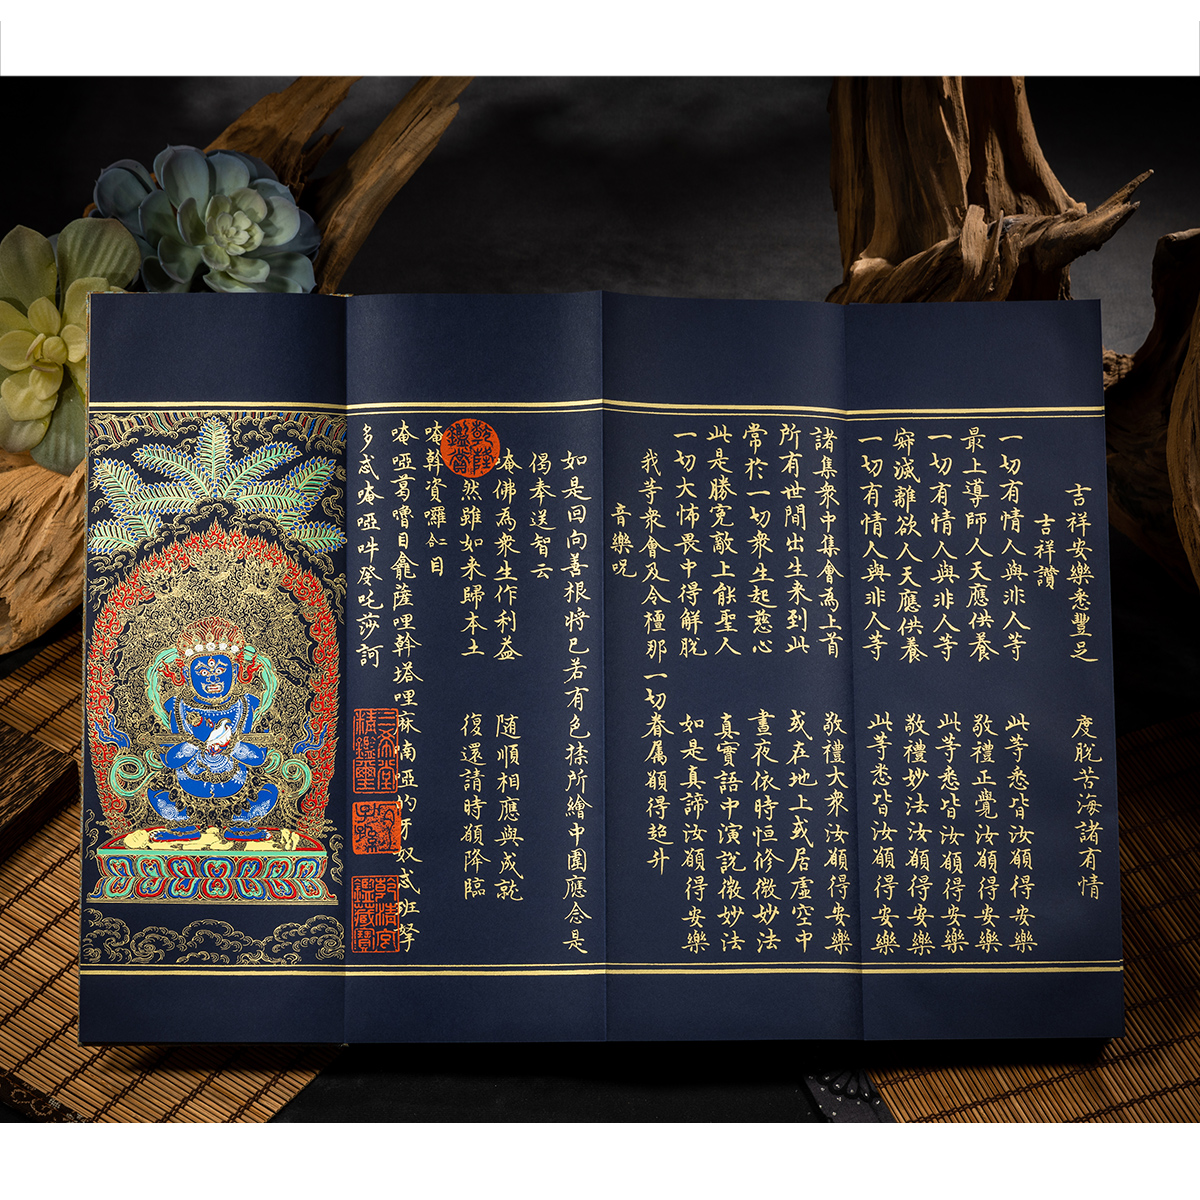 吉祥安樂悉豐足 度脫苦海諸有情
吉祥讚
一切有情人與非人等 此等悉皆汝願得安樂
最上導師人天應供養 敬禮正覺汝願得安樂
一切有情人與非人等 此等悉皆汝願得安樂
寂滅離欲人天應供養 敬禮妙法汝願得安樂
一切有情人與非人等 此等悉皆汝願得安樂
諸集衆中集會為上首 敬禮大衆汝願得安樂
所有世間出生来到此 或在地上或居虛空中
常於一切衆生起慈心 晝夜依時恒修微妙法
此是勝宽敵上能聖人 真實語中演說微妙法
一切大怖畏中得解脫 如是真諦汝願得安樂
我等衆會及今檀那一切眷属願得超升
音樂呪
如是回向善根將已若有色搽所繪中圍應念是
偈奉送智云
唵佛為衆生作利益 随順相應與成就
然雖如来歸本土 復還請時願降臨
唵斡資囉仁目
唵啞葛嚕目龕薩哩斡塔哩麻喃啞的牙奴忒班拏
多忒唵啞吽癹吒莎訶
乾隆鑑賞
三希堂精鑑璽
宜子孫
乾清宮鑑藏寶